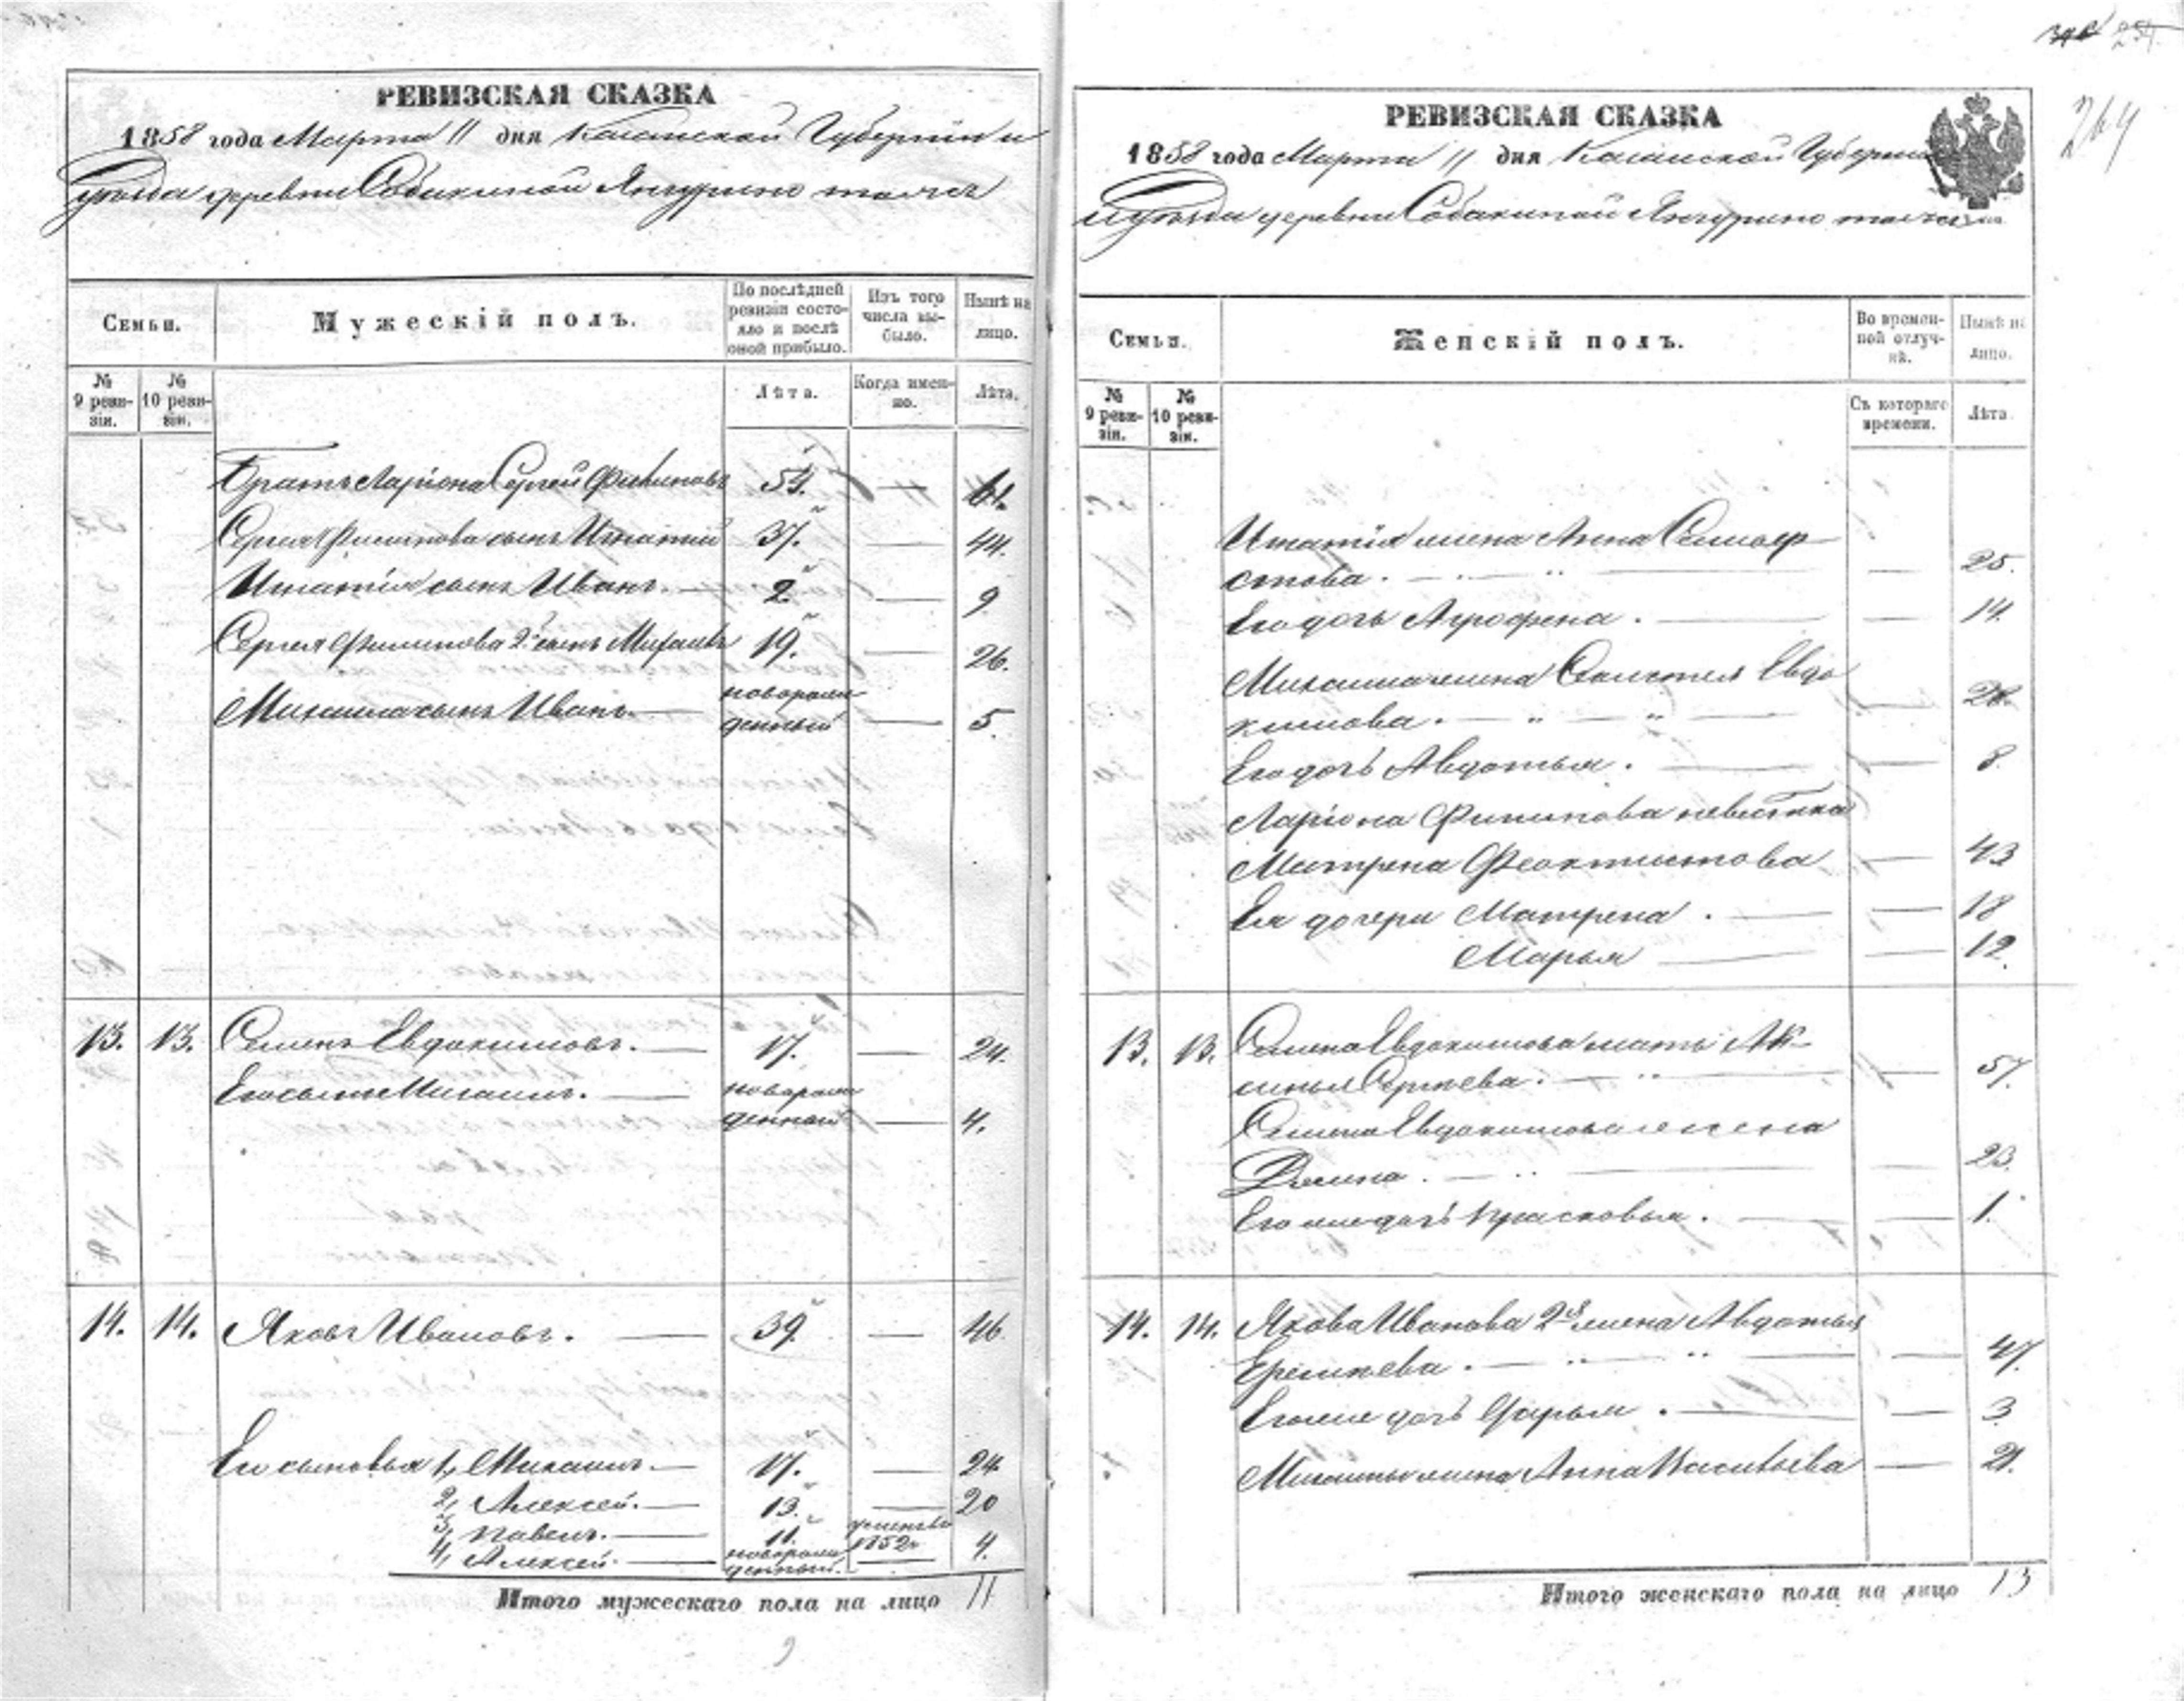 РЕВИЗСКАЯ СКАЗКА
1858 года Марта 11 дня Казанской Губернiи и
уѣзда деревни Собакиной Янгурино тожъ
Семьи.
Мужескiй полъ.
По послѣдней ревизiи состояло и послѣ оной прибыло.
Изъ того числа выбыло.
Нынѣ на лицо.
№ 9 ревизiи.
№ 10 ревизiи.
Лѣта.
Когда именно.
Лѣта.
Братъ Ларiона Сергей Филиповъ 54. — 61.
Сергея Филипова сынъ Игнатий 37. — 44.
Игнатiя сынъ Иванъ. — 2. — 9
Сергея Филипова 2й сынъ Михаилъ 19. — 26.
Михаила сынъ Иванъ. — новорожденный — 5.
13. 13. Семенъ Евдокимовъ. — 17. — 24.
Его сынъ Михаилъ. — новорожденный — 4.
14. 14. Яковъ Ивановъ. — 39. — 46
Ея сыновья 1, Михаилъ. — 17. — 24
2, Алексей. — 13. — 20
3, Павелъ. — 11. 1852
4, Алексей. — новорожденный. — 4.
Итого мужескаго пола на лицо 11
РЕВИЗСКАЯ СКАЗКА
1858 года Марта 11 дня Казанской Губернiи
и уѣзда деревни Собакиной Янгурино тожъ
264
Семьи.
Женскiй полъ.
Во временной отлучкѣ.
Нынѣ на лицо.
№ 9 ревизiи.
№ 10 ревизiи.
Съ котораго времени.
Лѣта.
Игнатiя жена Анна
стова. — — 25.
Его дочь Агрофена. — — 14.
Михаила жена Евдо
кимова. — —
Его дочь Авдотья. — — 8.
Ларiона Филипова невестка
Матрена Феоктистова — 43
Ея дочери Матрена. — — 18
Марья — — 12.
13. 13. Семена Евдокимова мать Ак-
синья Сергѣева. — — 57.
Семена Евдокимова жена
— — 23.
Его же дочь Прасковья. — — 1.
14. 14. Якова Иванова 2я жена Авдотья
Еремѣева. — — 47.
Его же дочь Дарья. — — 3.
Михаилы жена Анна Васильева — 21.
Итого женскаго пола на лицо 13